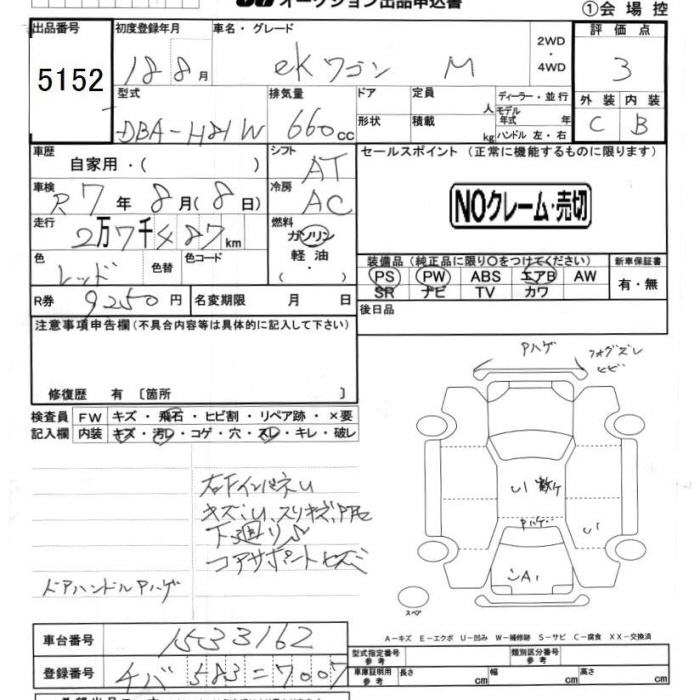 オークション出品申込書
①会場控
出品番号 初度登録年月 車名・グレード 2WD・4WD 評価点
5152 18 8月 eKワゴン M 3
型式 排気量 ドア 定員 人 ディーラー・並行 外装 内装
DBA-H81W 660cc 形状 積載 kg モデル年式 年 ハンドル 左・右 C B
車歴 自家用・( ) シフト AT セールスポイント (正常に機能するものに限ります)
車検 R7年8月(8日) 冷房 AC
NOクレーム・売切
走行 2万7千487km 燃料 ガソリン 軽油 ( ・ )
色 レッド 色替 色コード
装備品(純正品に限り○をつけてください) 新車保証書
PS PW ABS エアB AW 有・無
SR ナビ TV カワ
R券 9250円 名変期限 月 日 後日品
注意事項申告欄(不具合内容等は具体的に記入して下さい)
修復歴 有 〔箇所 〕
検査員 FW キズ・飛石・ヒビ割・リペア跡・×要
記入欄 内装 キズ・汚レ・コゲ・穴・スレ・キレ・破レ
Pハゲ
フォグズレ
ヒビ
右FインパネU
キズ、U、スリキズ、
下廻りS
コアサポートキズ
ドアハンドルPハゲ
U1
Pハゲ
U1
A1
スペア
A-キズ E-エクボ U-凹み W-補修跡 S-サビ C-腐食 XX-交換済
車台番号 1533162
登録番号 チバ583=7007
型式指定番号 参考 類別区分番号 参考
車庫証明用 参考 長さ cm 幅 cm 高さ cm